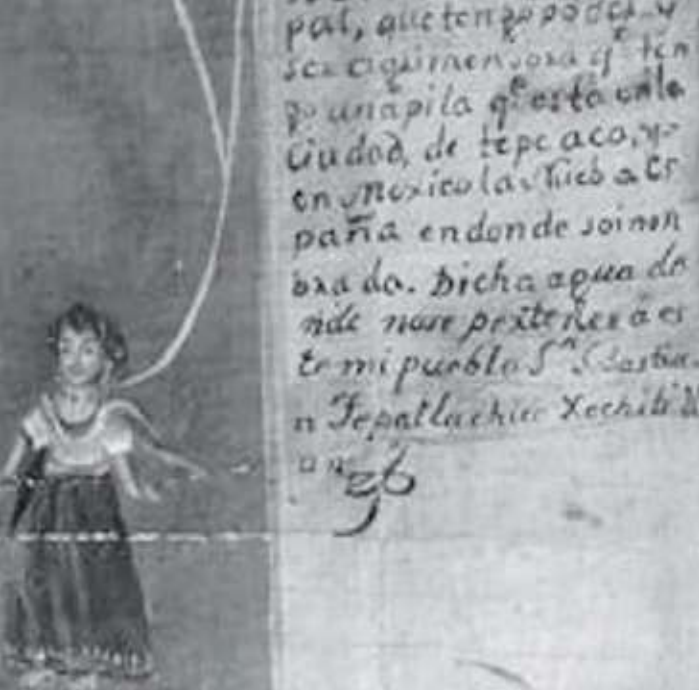 pal, que tengo poder y
ser aqui men ora q.e ten
go unapila q.e està enla
Ciudad, de tepe aco, y
en Mexico la Nueb a Es
paña endonde soi non
bra do. Dicha agua do
nde nase pertenes á es
te mi pueblo S.n Sebastia
n Tepatlachico Xochitit
an